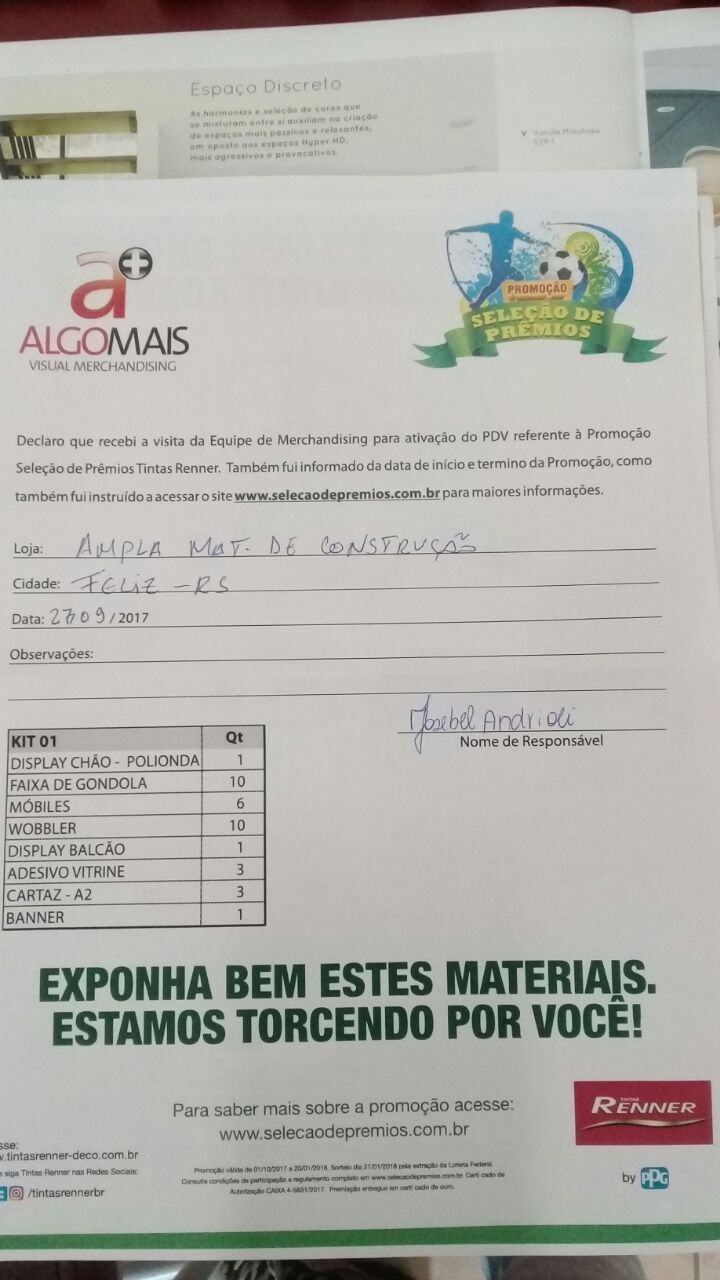 Espaço Discreto
As harmonias e seleção de cores que
se misturam entre si auxiliam na criação
de espaços mais passivos e relaxantes,
em oposto aos espaços Hyper HD,
mais agressivos e provocativos.
V Vanilla Milkshake
529-1
a+
ALGOMAIS
VISUAL MERCHANDISING
PROMOÇÃO
SELEÇÃO DE
PRÊMIOS
Declaro que recebi a visita da Equipe de Merchandising para ativação do PDV referente à Promoção
Seleção de Prêmios Tintas Renner. Também fui informado da data de início e termino da Promoção, como
também fui instruído a acessar o site www.selecaodepremios.com.br para maiores informações.
Loja: AMPLA MAT. DE CONSTRUÇÃO
Cidade: FELIZ - RS
Data: 27/09/2017
Observações:
Josebel Andrioli
Nome de Responsável
KIT 01 Qt
DISPLAY CHÃO - POLIONDA 1
FAIXA DE GONDOLA 10
MÓBILES 6
WOBBLER 10
DISPLAY BALCÃO 1
ADESIVO VITRINE 3
CARTAZ - A2 3
BANNER 1
EXPONHA BEM ESTES MATERIAIS.
ESTAMOS TORCENDO POR VOCÊ!
Para saber mais sobre a promoção acesse:
www.selecaodepremios.com.br
TINTAS
RENNER
by PPG
sse:
w.tintasrenner-deco.com.br
e siga Tintas Renner nas Redes Sociais:
/tintasrennerbr
Promoção válida de 01/10/2017 a 20/01/2018. Sorteio dia 27/01/2018 pela extração da Loteria Federal.
Consulte condições de participação e regulamento completo em www.selecaodepremios.com.br Certi cado de
Autorização CAIXA 4-5631/2017. Premiação entregue em certi cado de ouro.